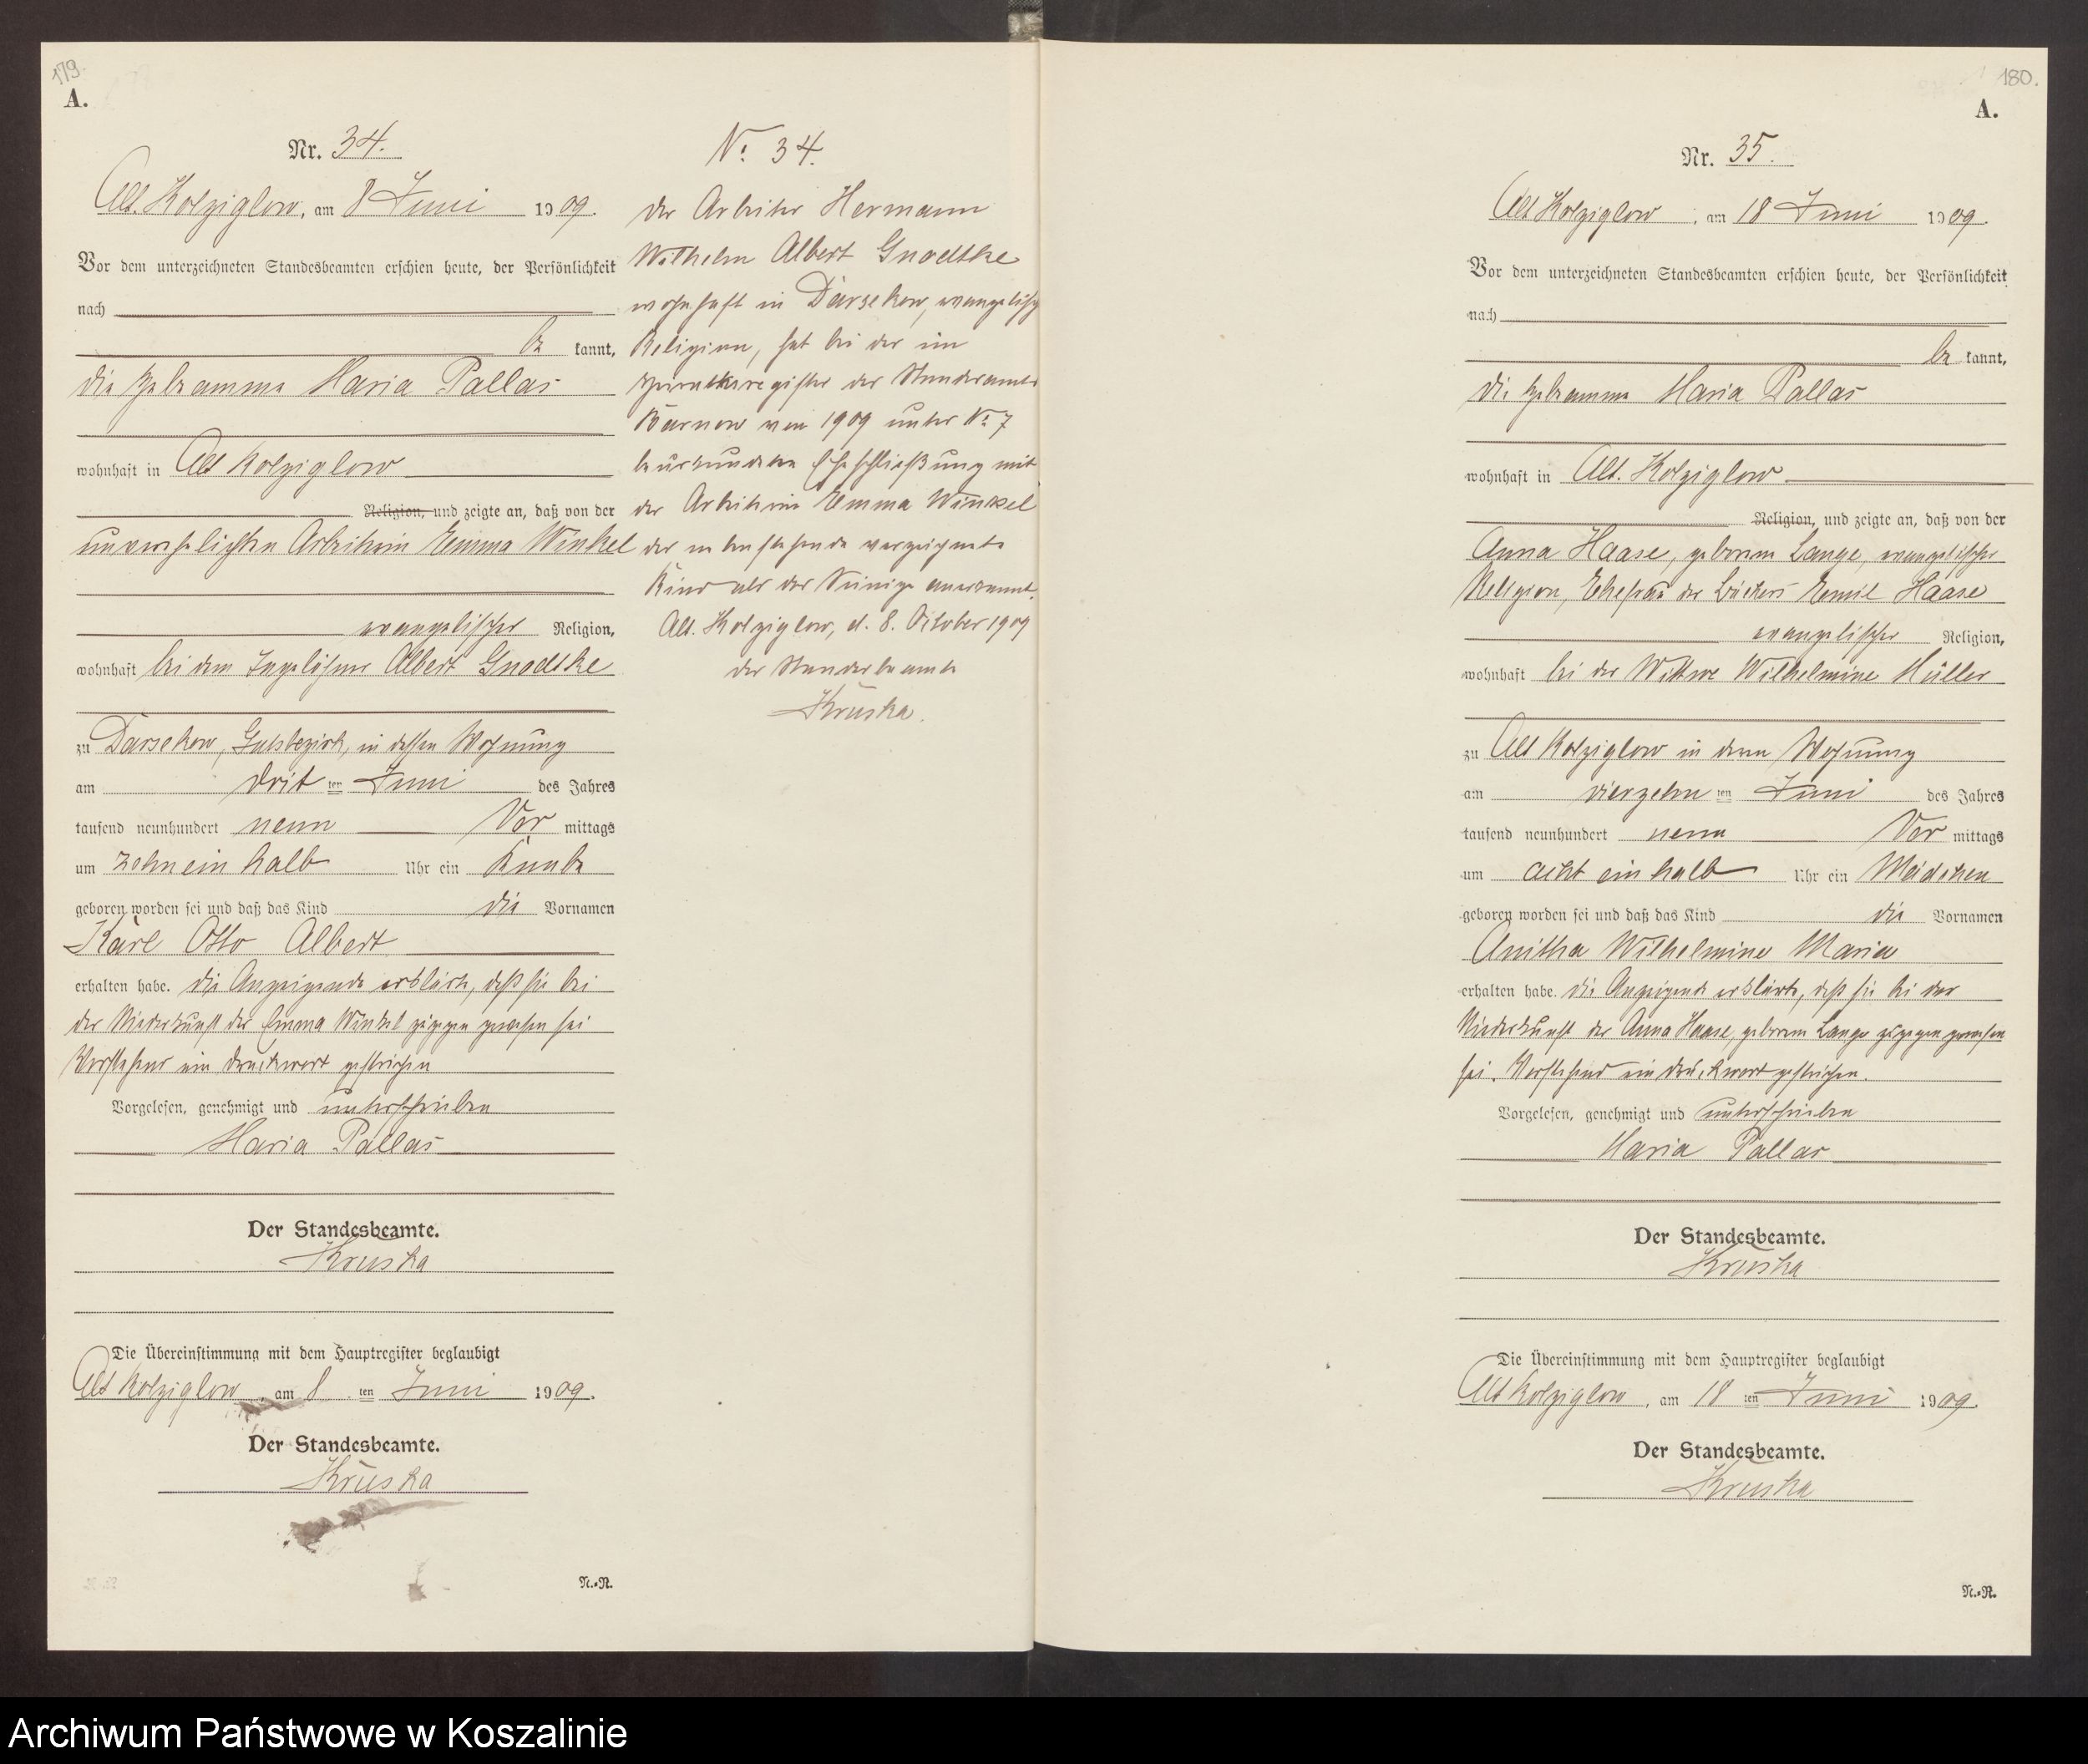 179.
A.
Nr. 34.
Alt. Kolziglow, am 8 Juni 1909.
Vor dem unterzeichneten Standesbeamten erschien heute, der Persönlichkeit
nach
be kannt,
die Hebeamme Maria Pallas
wohnhaft in Alt Kolziglow
Religion, und zeigte an, daß von der
unverehelichten Arbeiterin Emma Winkel
evangelischer Religion,
wohnhaft bei dem Albert Gnodtke
zu Darsekow, Gutsbezirk, in dessen Wohnung
am drit ten Juni des Jahres
tausend neunhundert neun Vor mittags
um zehn ein halb Uhr ein Knabe
geboren worden sei und daß das Kind die Vornamen
Karl Otto Albert
erhalten habe. Die Anzeigende erklärte, daß sie bei
der Niederkunft der Emma Winkel zugegen gewesen sei
Vorstehend ein Druckwort gestrichen
Vorgelesen, genehmigt und unterschrieben
Maria Pallas
Der Standesbeamte.
Kruska
Die Übereinstimmung mit dem Hauptregister beglaubigt
Alt Kolziglow, am 8 ten Juni 1909.
Der Standesbeamte.
Kruska
N.-R.
No 34.
Der Arbeiter Hermann
Wilhelm Albert Gnodtke
wohnhaft in Darsekow, evangelisch
Religion, hat bei der im
Heiratsregister des Standesamts
Bärnow von 1909 unter No 7
beurkundeten Eheschließung mit
der Arbeiterin Emma Winkel
das nebenstehende verzeichnete
Kind als das Seinige anerkannt.
Alt. Kolziglow, d. 8. October 1909
der Standesbeamte
Kruska.
180.
A.
Nr. 35.
Alt Kolziglow, am 18 Juni 1909.
Vor dem unterzeichneten Standesbeamten erschien heute, der Persönlichkeit
nach
be kannt,
die Hebeamme Maria Pallas
wohnhaft in Alt. Kolziglow
Religion, und zeigte an, daß von der
Anna Haase, geborene Lange, evangelischer
Religion, Ehefrau des Bäckers Emil Haase
evangelischer Religion,
wohnhaft bei der Wittwe Wilhelmine Müller
zu Alt Kolziglow in deren Wohnung
am vierzehn ten Juni des Jahres
tausend neunhundert neun Vor mittags
um acht ein halb Uhr ein Mädchen
geboren worden sei und daß das Kind die Vornamen
Anitha Wilhelmine Maria
erhalten habe. Die Anzeigende erklärte, daß sie bei der
Niederkunft der Anna Haase, geborene Lange zugegen gewesen
sei. Vorstehend ein Druckwort gestrichen.
Vorgelesen, genehmigt und unterschrieben
Maria Pallas
Der Standesbeamte.
Kruska
Die Übereinstimmung mit dem Hauptregister beglaubigt
Alt Kolziglow, am 18 ten Juni 1909.
Der Standesbeamte.
Kruska
N.-R.
Archiwum Państwowe w Koszalinie